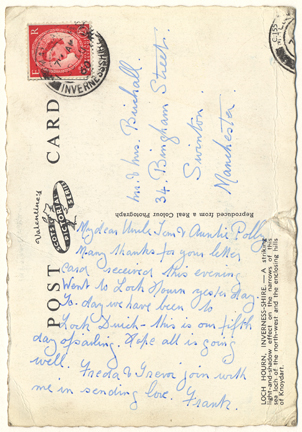 My dear Uncle Tom & Auntie Polly
Many thanks for your letter
card received this evening.
Went to Loch Hourn yesterday
To-day we have been to
Loch Duich – this is our fifth
day of sailing. Hope all is going
well. Freda & Trevor join with
me in sending love. Frank.
Mr & Mrs. Birchall.
34, Bingham Street.
Swinton.
Manchester
POST CARD
Valentine's
Reproduced from a Real Colour Photograph
LOCH HOURN, INVERNESS-SHIRE.—A striking
light-and-shadow effect on the narrows of this
sea loch of the north-west and the enclosing hills
of Knoydart.
E R
INVERNESS-SHIRE